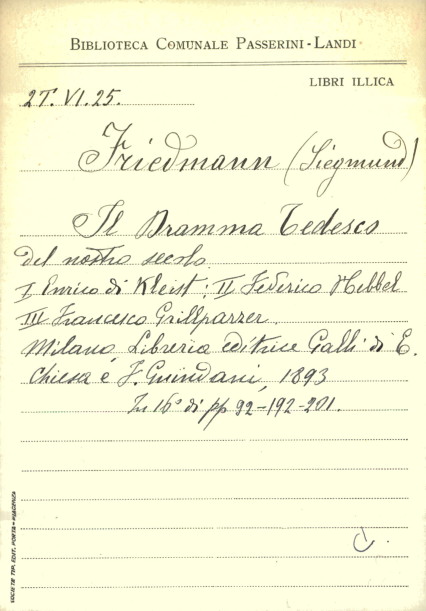 BIBLIOTECA COMUNALE PASSERINI-LANDI
LIBRI ILLICA
2T. VI. 25.
Friedmann (Siegmund)
Il Dramma Tedesco
del nostro secolo
I Enrico di Kleist; II Federico Hebbel
III Francesco Grillparzer.
Milano, Libreria editrice Galli di E.
Chiesa e F. Guindani, 1893
In 16° di pp 92-192-201.
C.
SOCIETÀ TIP. EDIT. PORTA - PIACENZA